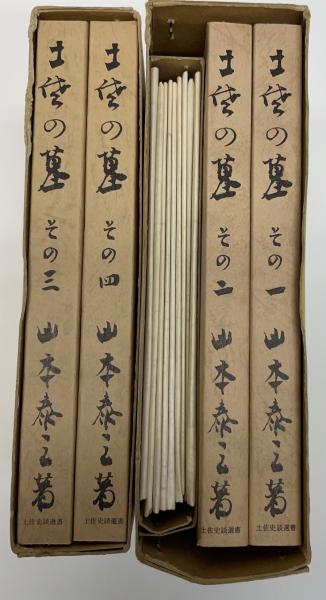 土佐の墓 その一 山本泰三著
土佐史談選書
土佐の墓 その二 山本泰三著
土佐史談選書
土佐の墓 その四 山本泰三著
土佐史談選書
土佐の墓 その三 山本泰三著
土佐史談選書